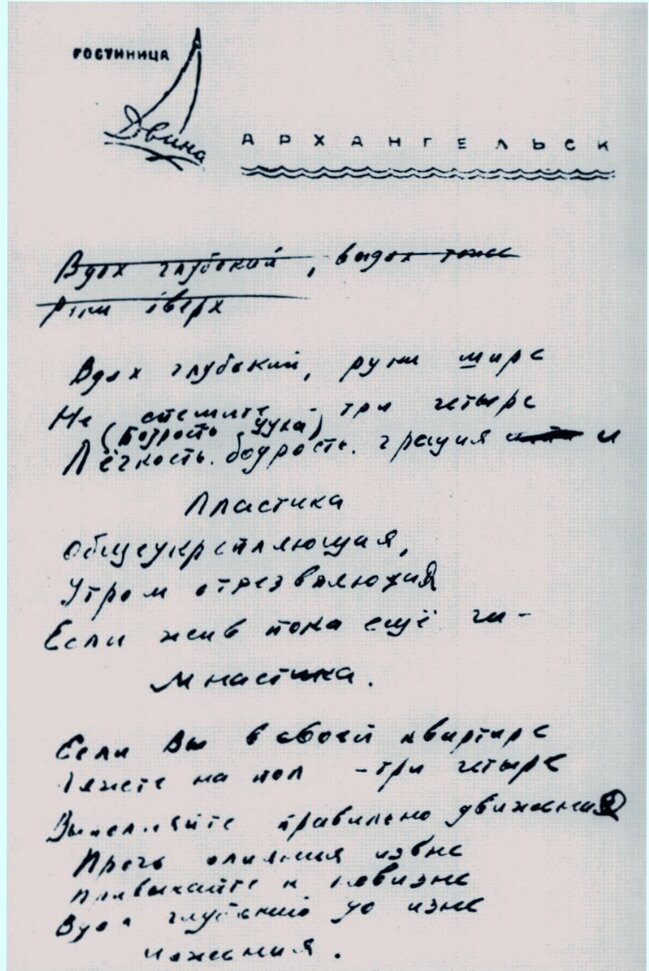 ГОСТИНИЦА
Двина
АРХАНГЕЛЬСК
Вдох глубокий, выдох тоже
Руки вверх
Вдох глубокий, руки шире
Не спешите три четыре
(Бодрость духа)
Лёгкость. бодрость. грация и
Пластика
общеукрепляющая,
Утром отрезвляющая
Если жив пока ещё ги-
мнастика.
Если Вы в своей квартире
Ляжете на пол - три четыре
Выполняйте правильно движения
Прочь влияния извне
привыкайте к новизне
Вдох глубокий до изне
можения.